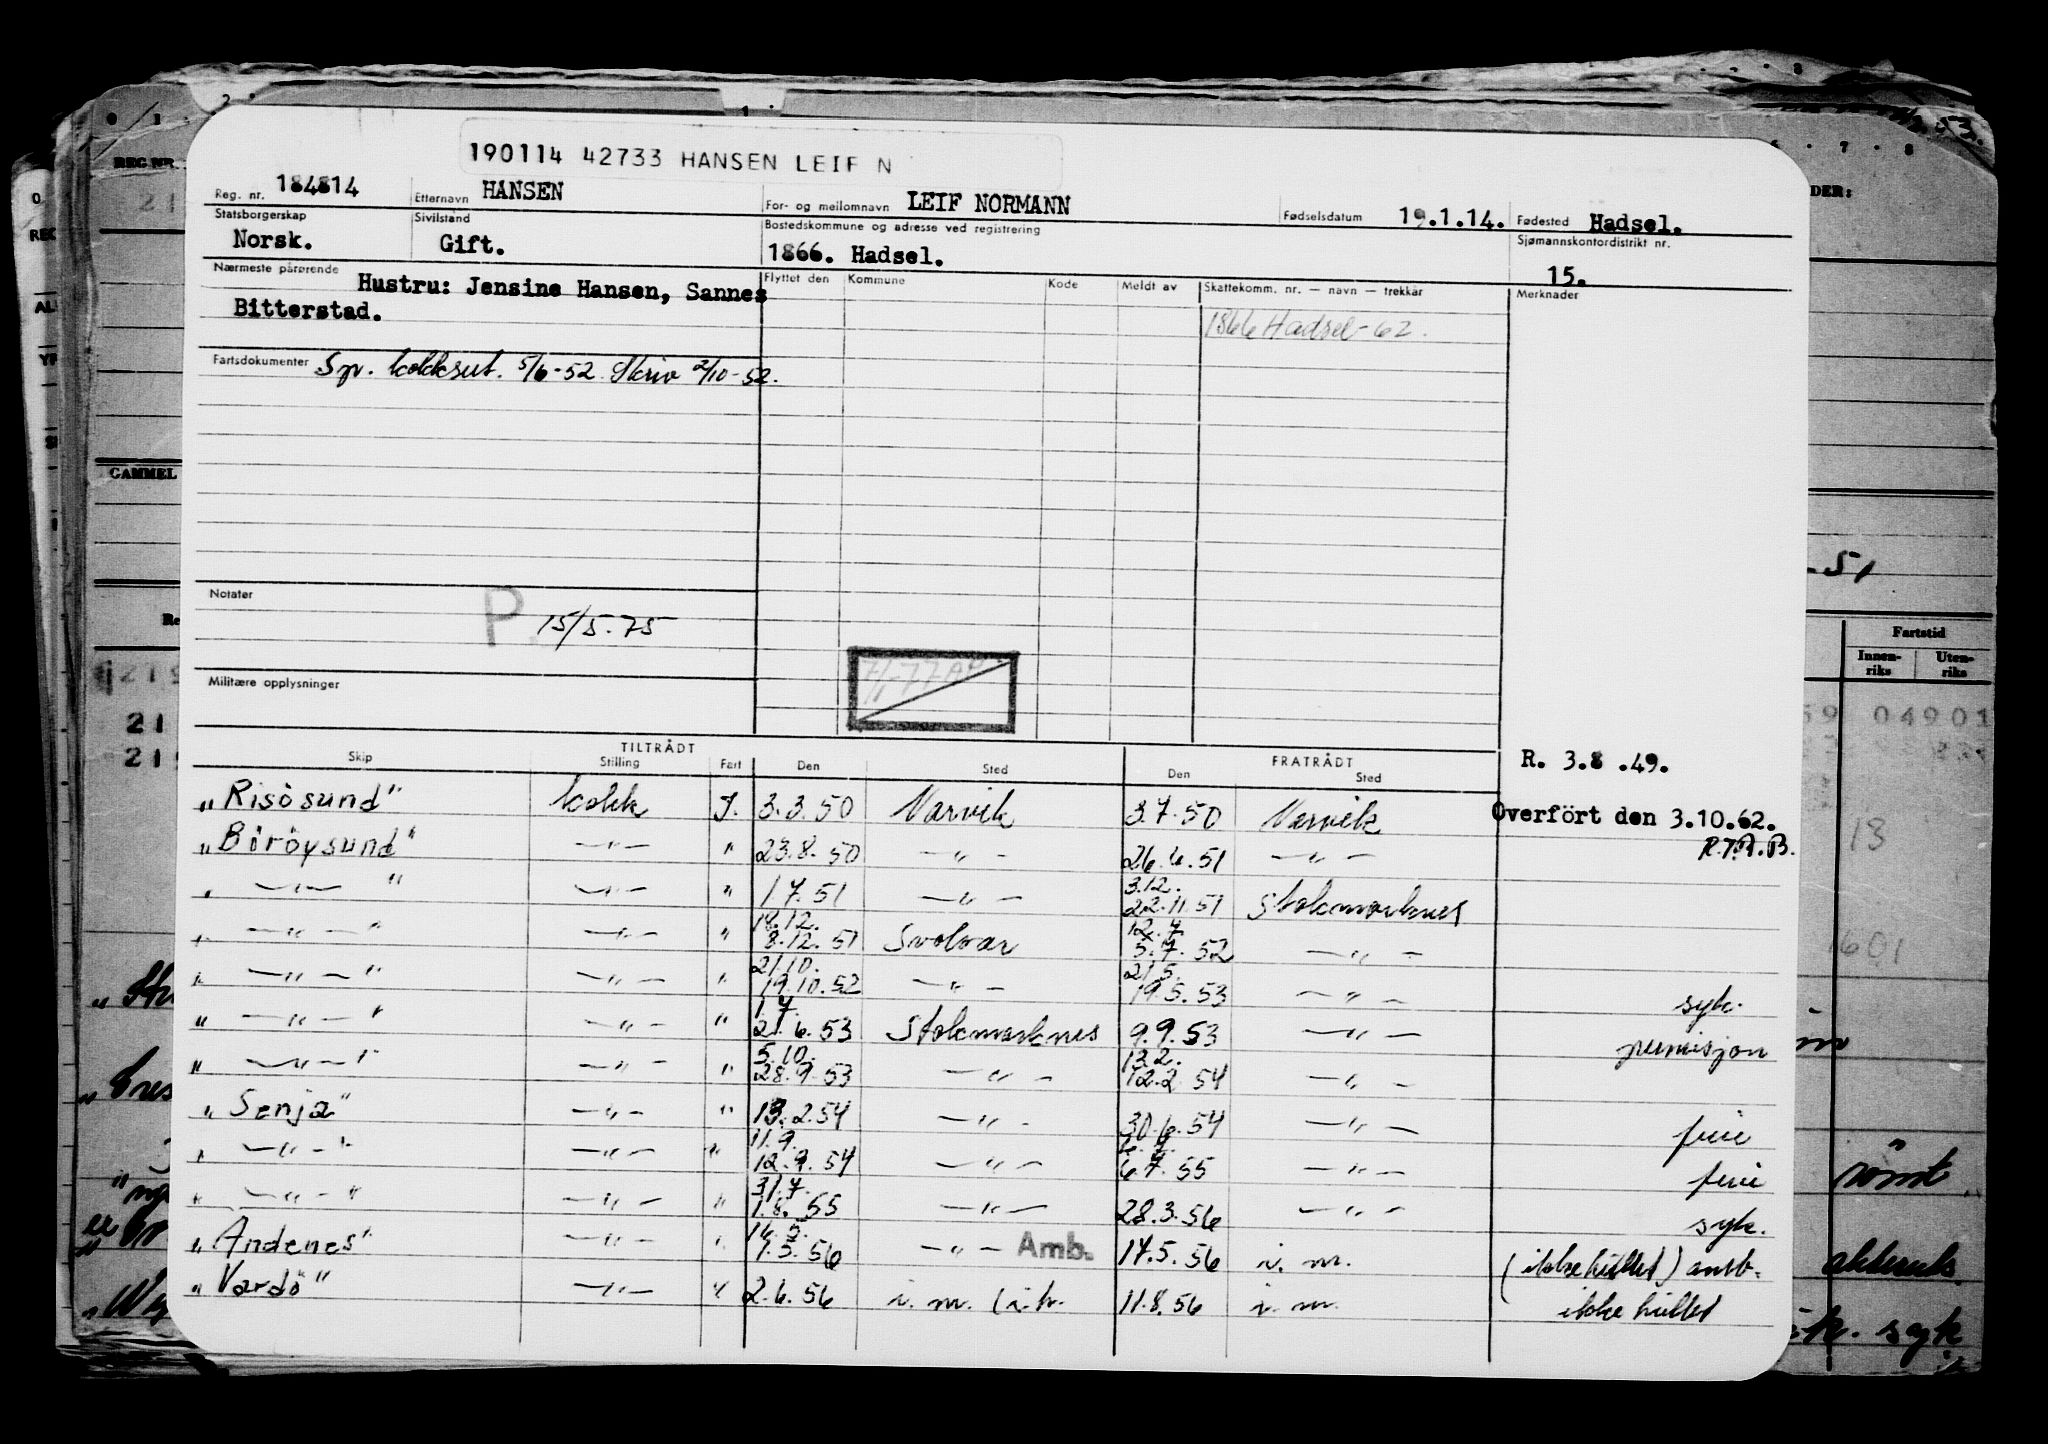 190114 42733 HANSEN LEIF N
Reg. nr. 184814 Etternavn HANSEN For- og mellomnavn LEIF NORMANN Fødselsdatum 19.1.14. Fødested Hadsel.
Statsborgerskap Norsk. Sivilstand Gift. Bostedskommune og adresse ved registrering 1866. Hadsel. Sjømannskontordistrikt nr. 15.
Nærmeste pårørende Hustru: Jensine Hansen, Sannes
Bitterstad.
Flyttet den Kommune Kode Meldt av Skattekomm. nr. — navn — trekkår Merknader
1866 Hadsel-62.
Fartsdokumenter Sp. kokksut. 5/6-52. Skriv 2/10-52.
Notater P. 15/5.75
7/1-77
Militære opplysninger
TILTRÅDT FRATRÅDT
Skip Stilling Fart Den Sted Den Sted
R. 3.8 .49.
Overfört den 3.10.62.
R.T.A.B.
„Risösund" kokk J. 3.3.50 Narvik 3.7.50 Narvik
„Böröysund" —„— " 23.8.50 —„— 26.6.51 —„—
„ —„— " —„— " 1.7.51 —„— 3.12. 22.11.51 Stokmarknes
„ —„— " —„— " 18.12. 8.12.51 Svolvær 12.7. 5.7.52 —„—
„ —„— " —„— " 21.10. 19.10.52 —„— 21.5. 19.5.53 —„— syk.
„ —„— " —„— " 1.7. 21.6.53 Stokmarknes 9.9.53 —„— permisjon
„ —„— " —„— " 5.10. 28.9.53 —„— 13.2. 12.2.54 —„—
„Senja" —„— " 13.2.54 —„— 30.6.54 —„— ferie
„ —„— " —„— " 11.9. 12.9.54 —„— 6.7.55 —„— ferie
„ —„— " —„— " 31.7. 1.8.55 —„— 28.3.56 —„— syk.
„Andenes" —„— " 16.5. 1.5.56 —„— Amb. 17.5.56 i. m. (ikke hullet) amb.
„Vardö" —„— " 2.6.56 i. m. (i.h. 11.8.56 i. m. ikke hullet
REG.NR.
GAMMEL
DER:
-51
Fartstid
Innen-
riks
Uten-
riks
04901
13
601
syk